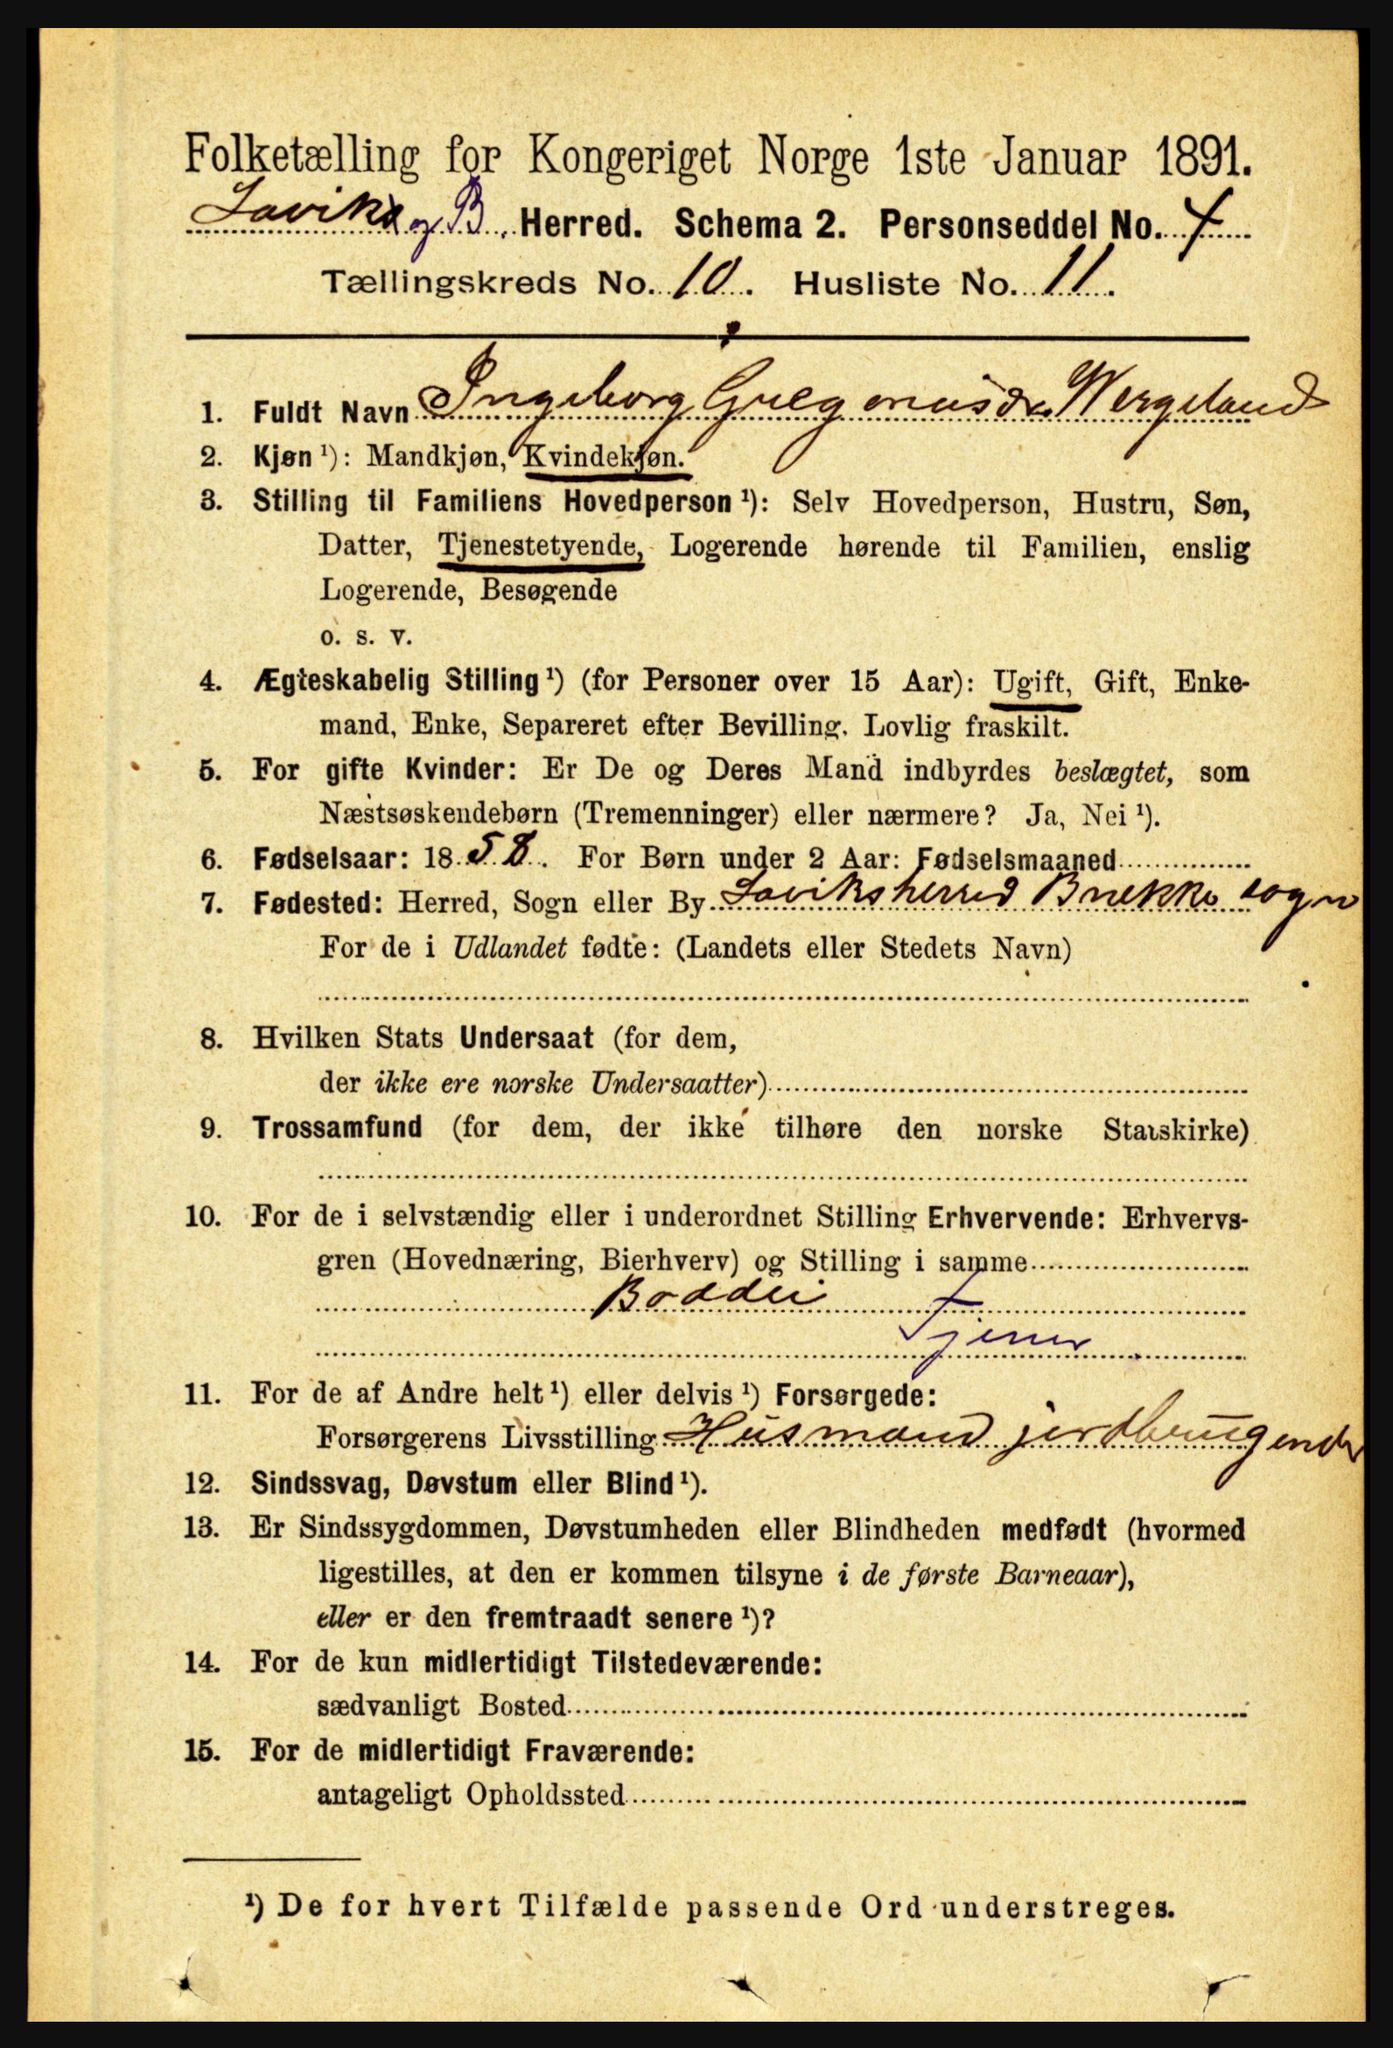 Folketælling for Kongeriget Norge 1ste Januar 1891.
Laviks og B. Herred. Schema 2. Personseddel No. 4
Tællingskreds No. 10. Husliste No. 11.
1. Fuldt Navn Ingeborg Gregoriusdr. Wergeland
2. Kjøn ¹): Mandkjøn, Kvindekjøn.
3. Stilling til Familiens Hovedperson ¹): Selv Hovedperson, Hustru, Søn,
Datter, Tjenestetyende, Logerende hørende til Familien, enslig
Logerende, Besøgende
o. s. v.
4. Ægteskabelig Stilling ¹) (for Personer over 15 Aar): Ugift, Gift, Enke-
mand, Enke, Separeret efter Bevilling. Lovlig fraskilt.
5. For gifte Kvinder: Er De og Deres Mand indbyrdes beslægtet, som
Næstsøskendebørn (Tremenninger) eller nærmere? Ja, Nei ¹).
6. Fødselsaar: 1858. For Børn under 2 Aar: Fødselsmaaned
7. Fødested: Herred, Sogn eller By Laviks herred Brekke sogn
For de i Udlandet fødte: (Landets eller Stedets Navn)
8. Hvilken Stats Undersaat (for dem,
der ikke ere norske Undersaatter)
9. Trossamfund (for dem, der ikke tilhøre den norske Statskirke)
10. For de i selvstændig eller i underordnet Stilling Erhvervende: Erhvervs-
gren (Hovednæring, Bierhverv) og Stilling i samme
Boddei
Tjener
11. For de af Andre helt ¹) eller delvis ¹) Forsørgede:
Forsørgerens Livsstilling Husmand jordbrugende
12. Sindssvag, Døvstum eller Blind ¹).
13. Er Sindssygdommen, Døvstumheden eller Blindheden medfødt (hvormed
ligestilles, at den er kommen tilsyne i de første Barneaar),
eller er den fremtraadt senere ¹)?
14. For de kun midlertidigt Tilstedeværende:
sædvanligt Bosted
15. For de midlertidigt Fraværende:
antageligt Opholdssted
¹) De for hvert Tilfælde passende Ord understreges.